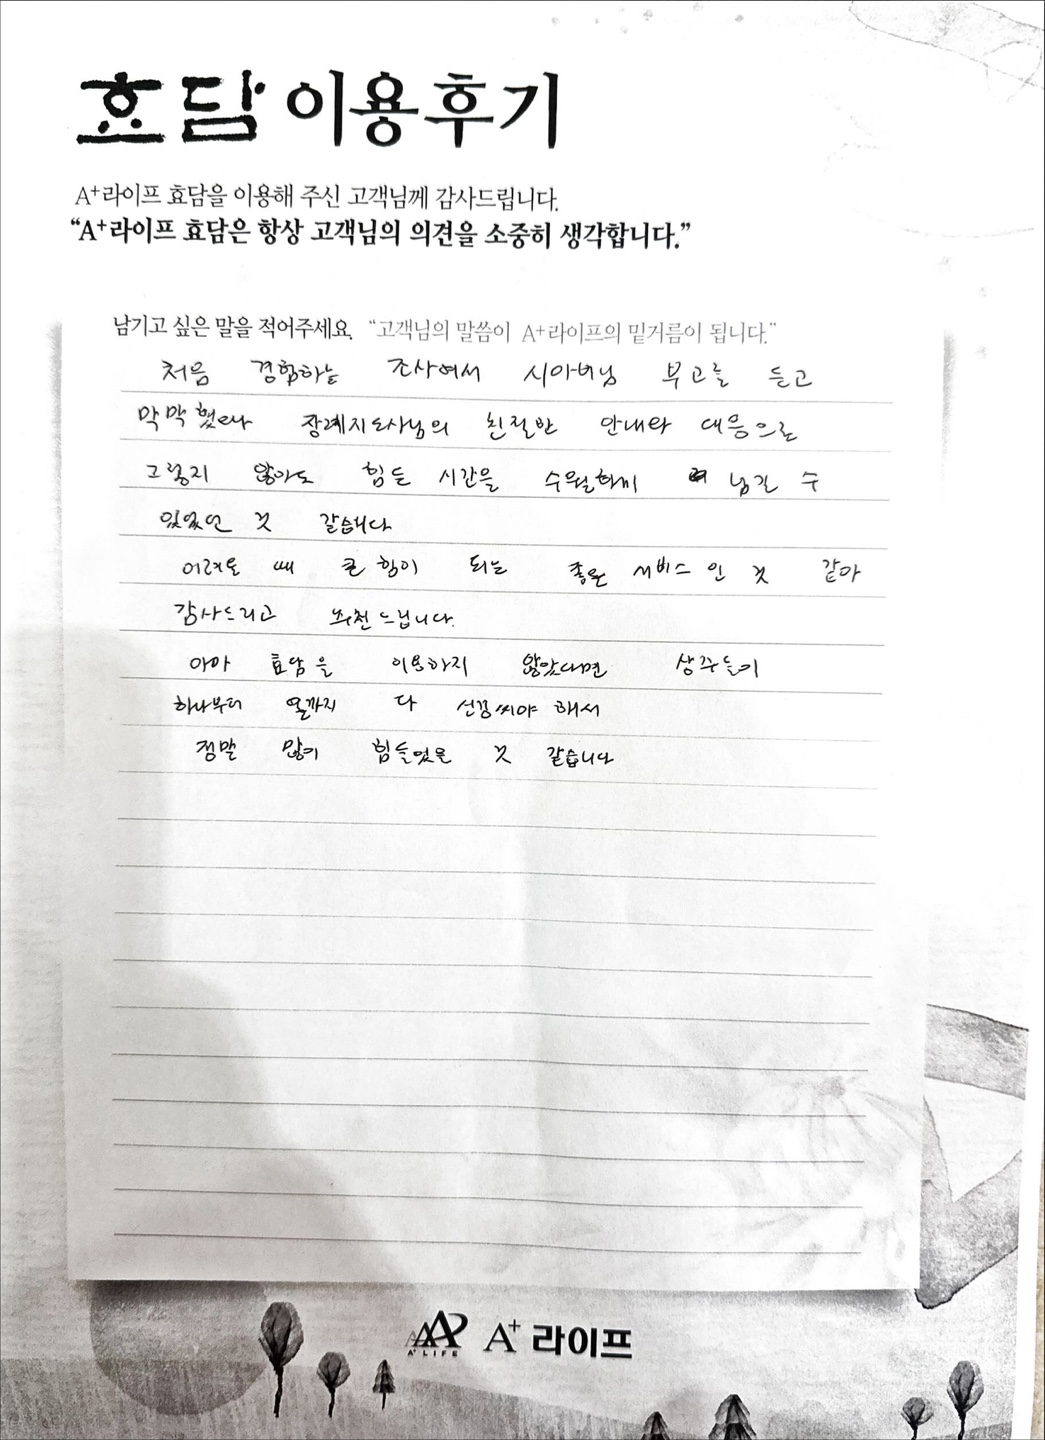 효담 이용후기
A+라이프 효담을 이용해 주신 고객님께 감사드립니다.
“A+라이프 효담은 항상 고객님의 의견을 소중히 생각합니다.”
남기고 싶은 말을 적어주세요. “고객님의 말씀이 A+라이프의 밑거름이 됩니다.”
처음 경험하는 조사여서 시아버님 부고를 듣고
막막했으나 장례지도사님의 친절한 안내와 대응으로
그렇지 않아도 힘든 시간을 수월하게 넘길 수
있었던 것 같습니다
어려울 때 큰 힘이 되는 좋은 서비스 인 것 같아
감사드리고 추천 드립니다.
아마 효담을 이용하지 않았다면 상주들이
하나부터 열까지 다 신경써야 해서
정말 많이 힘들었을 것 같습니다
A+ LIFE A+ 라이프